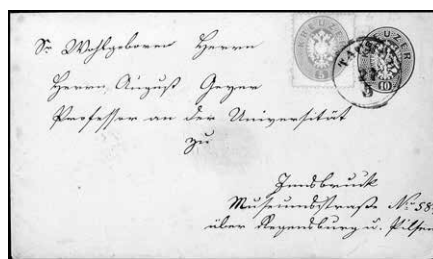 Sr Wohlgeboren Herrn
Herrn August Geyer
Professor an der Universität
zu
Innsbruck
Museumsstraße No 58
über Regensburg u. Pilsen
KREUZER
KREUZER
10